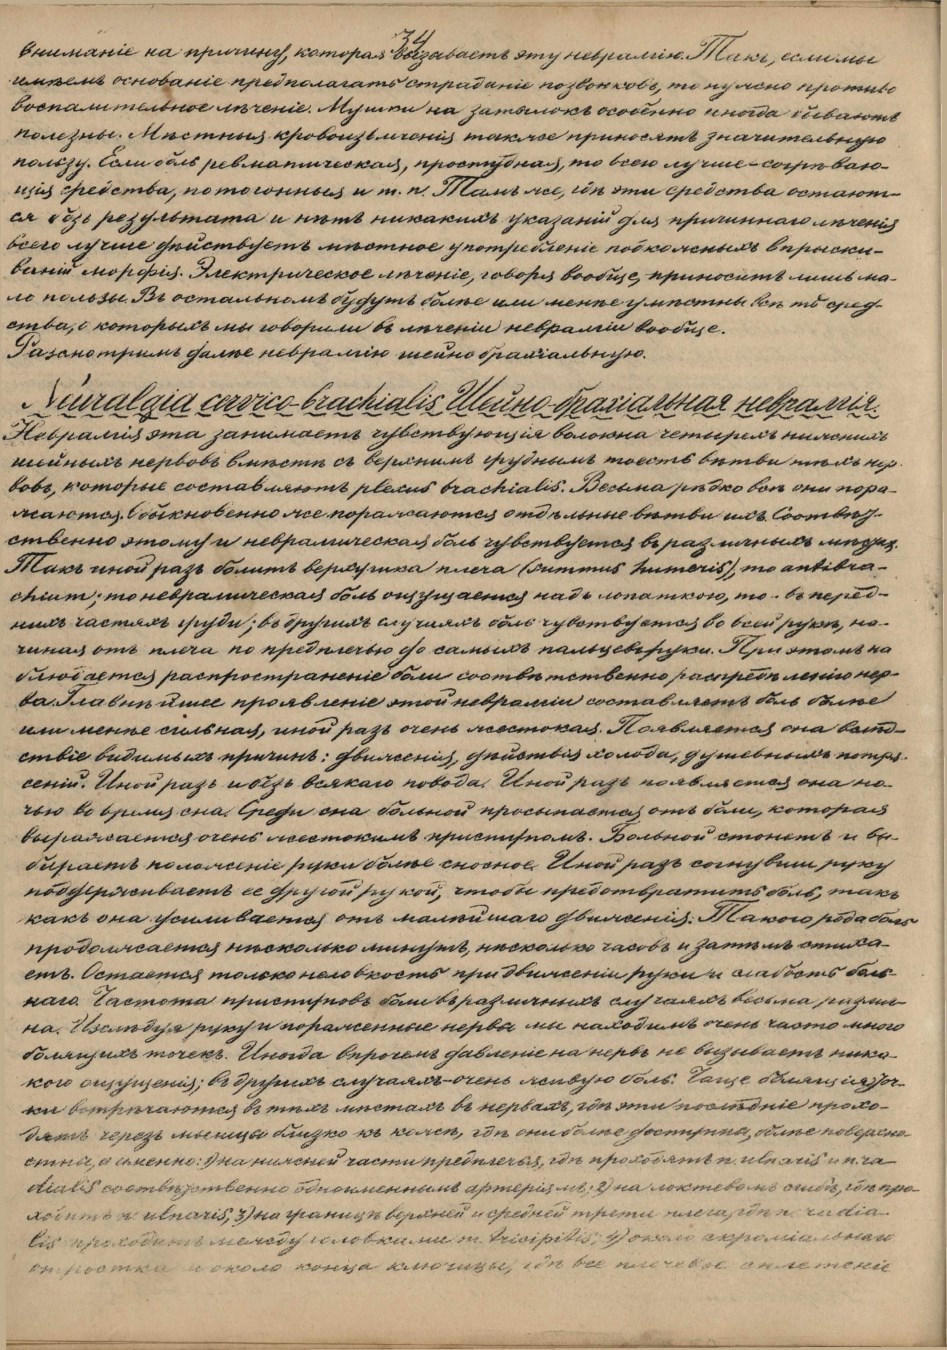 34
вниманіе на причину, которая вызываетъ эту невралгію. Такъ, если мы
имѣемъ основаніе предполагать страданіе позвонковъ, то нужно противо
воспалительное лѣченіе. Мушки на затылокъ особенно иногда бываютъ
полезны. Мѣстныя кровоизвлеченія также приносятъ значительную
пользу. Если боль ревматическая, простудная, то всего лучше – согрѣваю-
щія средства, потогонныя и т. п. Тамъ же, гдѣ эти средства остают-
ся безъ результата и нѣтъ никакихъ указаній для причиннаго лѣченія
всего лучше дѣйствуетъ мѣстное употребленіе подкожныхъ впрыски-
ваній морфія. Электрическое лѣченіе, говоря вообще, приноситъ лишь ма-
ло пользы Въ остальномъ будутъ болѣе или менѣе умѣстны всѣ тѣ сред-
ства, о которыхъ мы говорили въ лѣченіи невралгіи вообще.
Разсмотримъ далѣе невралгію шейно брахіальную.
Neuralgia cervico-brachialis Шейно-брахіальная невралгія.
Невралгія эта занимаетъ чувствующія волокна четырехъ нижнихъ
шейныхъ нервовъ вмѣстѣ съ верхнимъ груднымъ тоесть вѣтви тѣхъ нер-
вовъ, которые составляютъ plexus brachialis. Весьма рѣдко всѣ они пора-
жаются. Обыкновенно же поражаются отдѣльные вѣтви ихъ. Соотвѣт-
ственно этому и невралгическая боль чувствуется въ различныхъ мѣстахъ.
Такъ иной разъ болитъ верхушка плеча (summus humeris), то antibra-
chium; то невралгическая боль ощущается надъ лопаткою, то - въ перед-
нихъ частяхъ груди; въ другихъ случаяхъ боль чувствуется во всей рукѣ, на-
чиная отъ плеча по предплечью до самыхъ пальцевъ руки. При этомъ на
блюдается распространеніе боли соотвѣтственно распредѣленію нер-
ва. Главнѣйшее проявленіе этой невралгіи составляетъ боль болѣе
или менѣе сильная, иной разъ очень жестокая. Появляется она вслѣд-
ствіе видимыхъ причинъ: движенія, дѣйствія холода, душевныхъ потря-
сеній. Иной разъ и безъ всякаго повода. Иной разъ появляется она но-
чью во время сна. Среди сна больной просыпается отъ боли, которая
выражается очень жестокимъ приступомъ. Больной стонетъ и вы-
бираетъ положеніе руки болѣе сносное. Иной разъ согнувши руку
поддерживаетъ ее другой рукой, чтобы предотвратить боль, такъ
какъ она усиливается отъ малѣйшаго движенія. Такого рода боль
продолжается нѣсколько минутъ, нѣсколько часовъ и затѣмъ стиха-
етъ. Остается только неловкость при движеніи руки и слабость боль-
наго. Частота приступовъ боли въ различныхъ случаяхъ весьма различ-
на. Изслѣдуя руку и пораженные нервы мы находимъ очень часто много
болящихъ точекъ. Иногда впрочемъ давленіе на нервъ не вызываетъ ника-
кого ощущенія; въ другихъ случаяхъ – очень живую боль. Чаще болящія точ-
ки встрѣчаются въ тѣхъ мѣстахъ въ нервахъ, гдѣ эти послѣдніе прохо-
дятъ черезъ мышцы близко къ кожѣ, гдѣ они болѣе доступны, болѣе поверхно-
стны, а именно: 1) на нижней части предплечья, гдѣ проходятъ n. ulnaris и n. ra-
dialis соотвѣтственно одноименнымъ артеріямъ; 2) на локтевомъ сгибѣ, гдѣ про-
ходитъ n. ulnaris; 3) на границѣ верхней и средней трети плеча, гдѣ n. radia-
lis проходитъ между головками m. tricipitis; 4) около акроміальнаго
отростка и около конца ключицы, гдѣ все плечевое сплетеніе